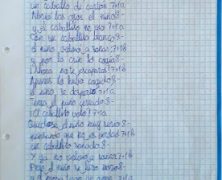 un caballo de cartón 7+1a
Abrió los ojos el niño 8-
y el caballito no vio 7+1a
Con un caballito blanco 8-
el niño volvió a soñar 7+1b
y por la crin lo cogía 8-
¡Ahora no te escaparás! 7+1b
Apenas lo hubo cogido 8-
el niño se despertó 7+1a
Tenía el puño cerrado 8-
¡El caballito voló! 7+1a
Quedóse el niño muy serio 8-
pensando que no es verdad 7+1b
un caballito soñado 8-
Y ya no volvió a soñar 7+1b
Pero el niño se hizo mozo 8-